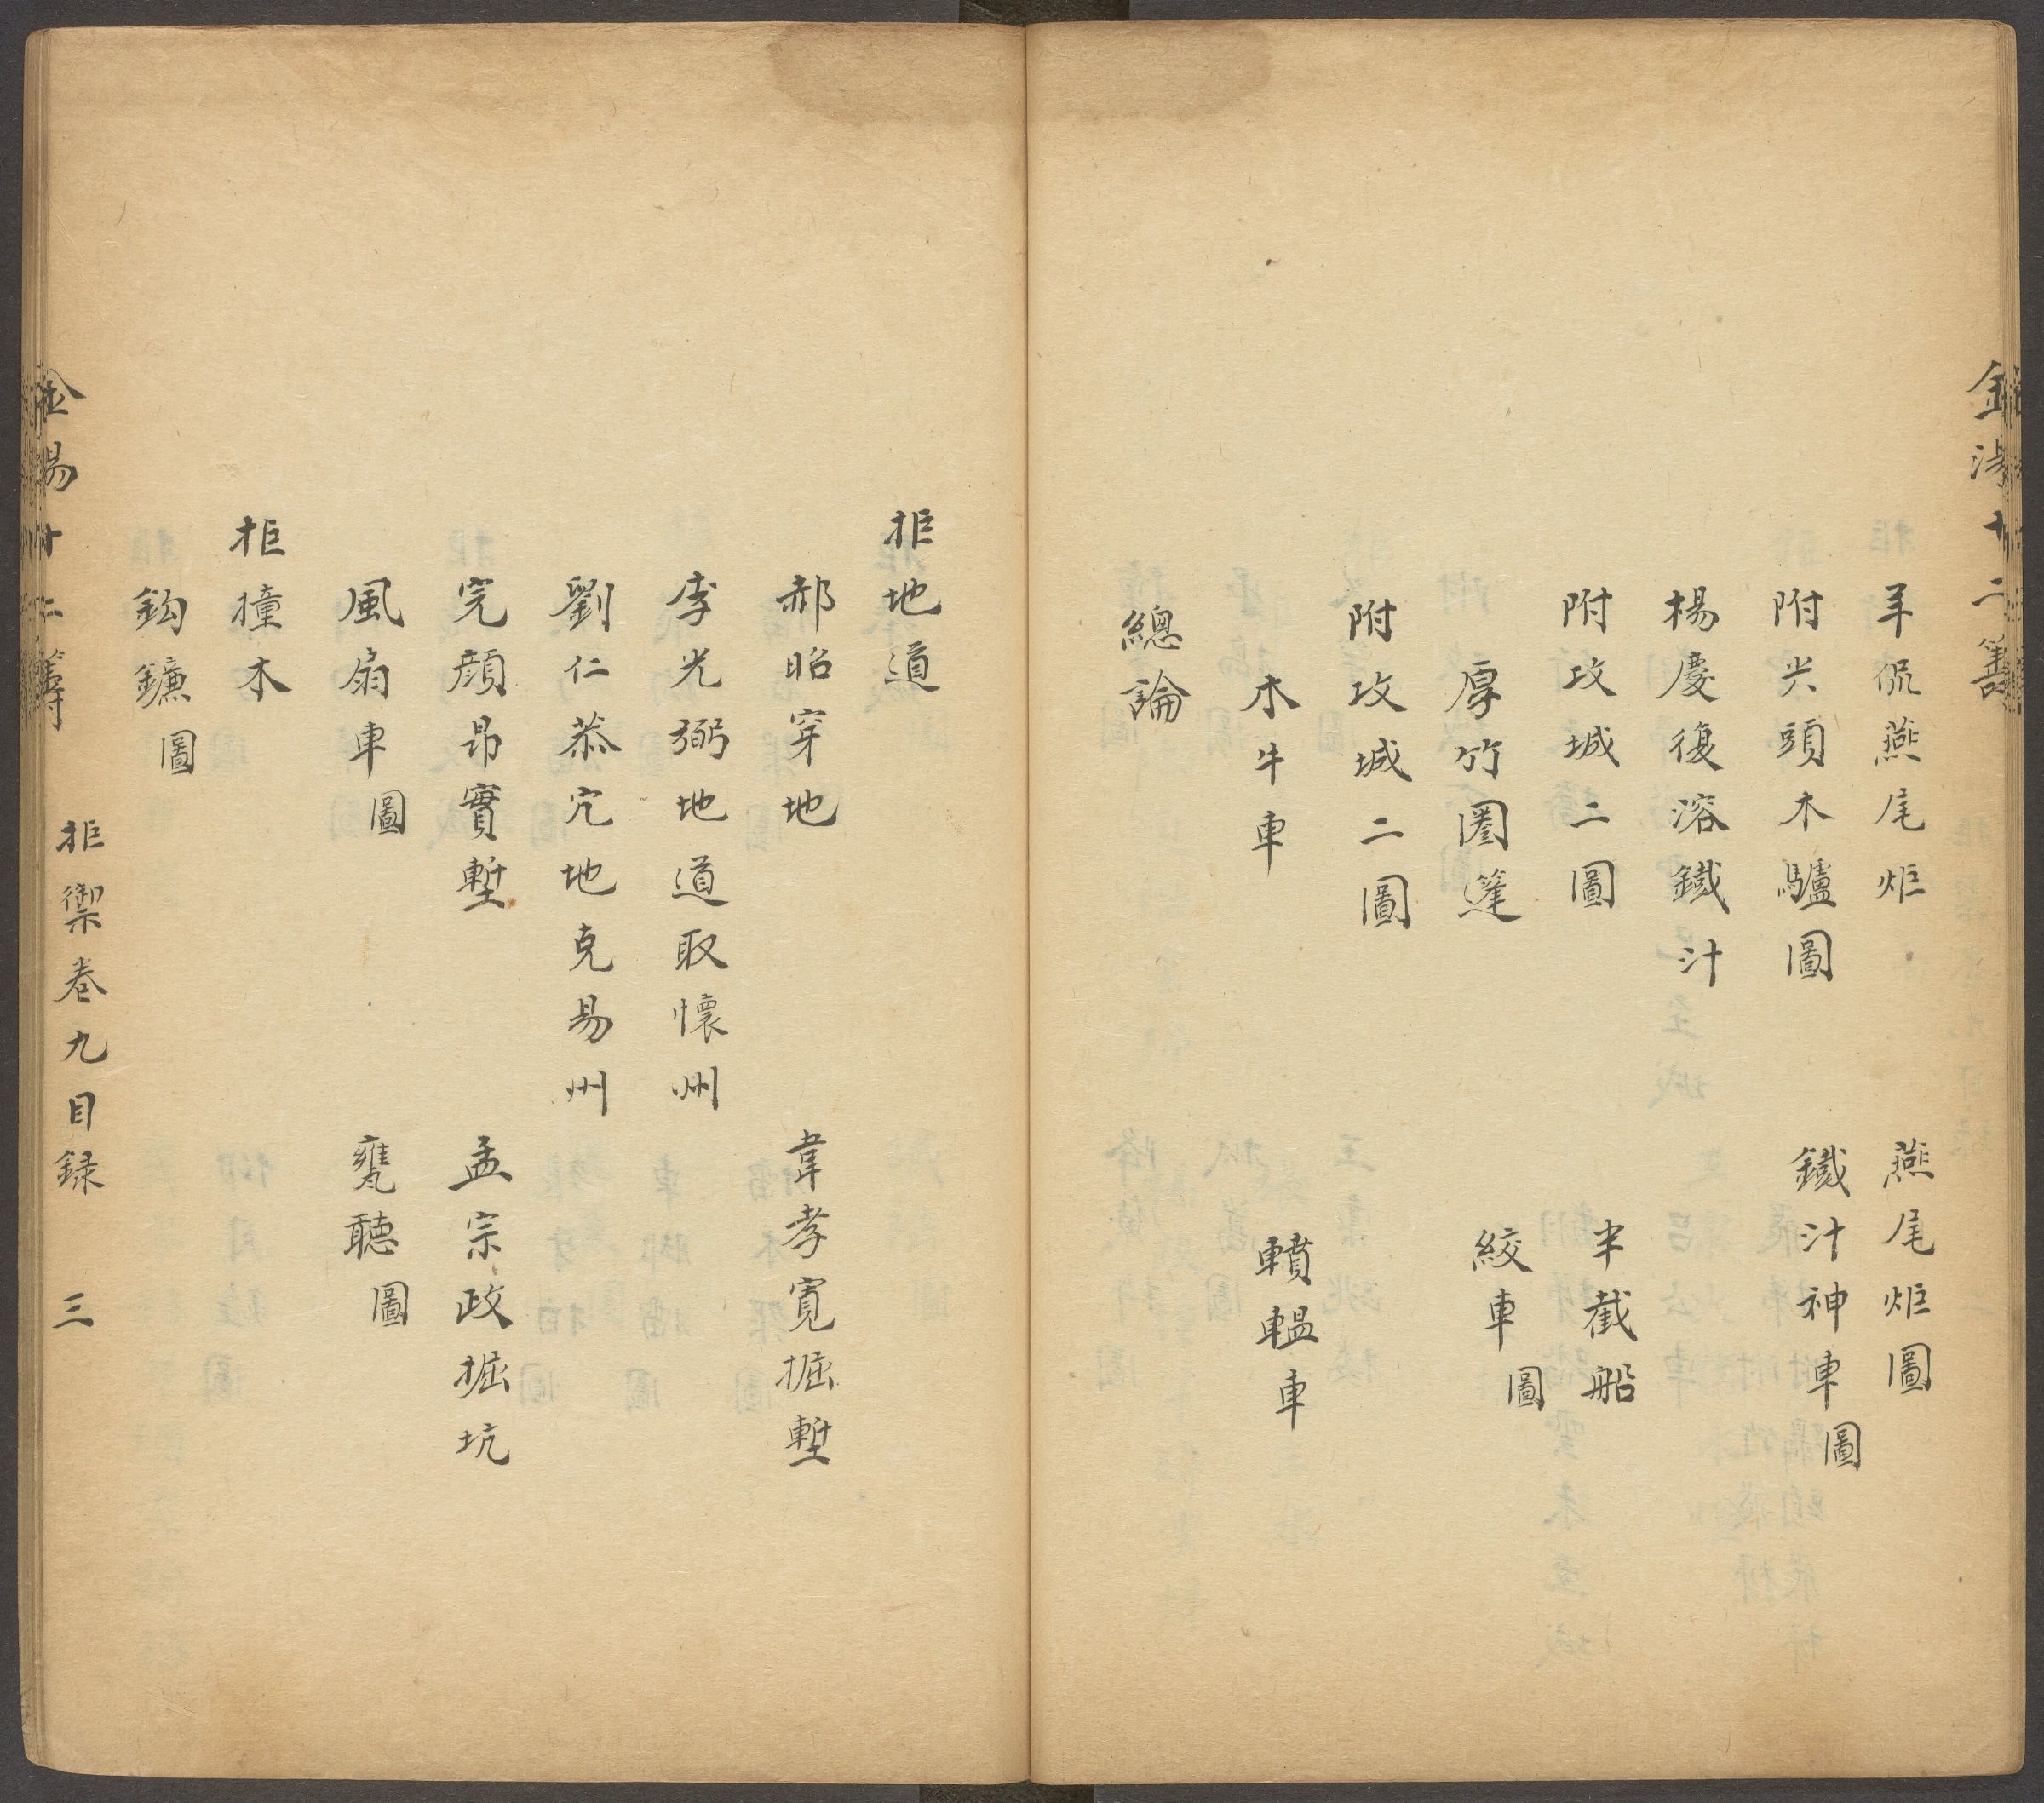 金湯十二籌
羊侃燕尾炬 燕尾炬圖
附尖頭木驢圖 鐵汁神車圖
楊慶復溶鐵汁
附攻城二圖 半截船
厚竹圏篷 絞車圖
附攻城二圖
木牛車 轒轀車
總論
拒地道
郝昭穿地 韋孝寬掘塹
李光弼地道取懷州
劉仁恭穴地克易州
完顔昂實塹 孟宗政掘坑
風扇車圖 甕聽圖
拒撞木
鈎鐮圖
金湯十二籌 拒禦卷九目録 三